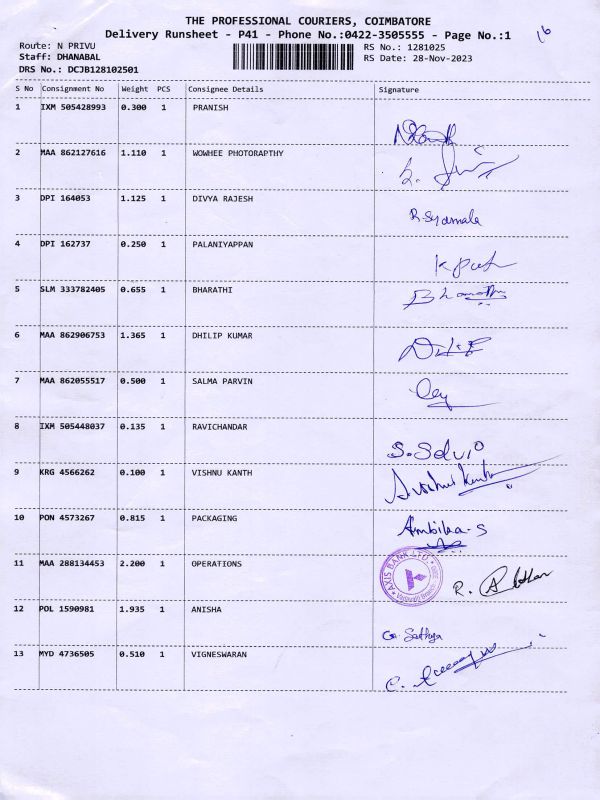 THE PROFESSIONAL COURIERS, COIMBATORE
Delivery Runsheet - P41 - Phone No.:0422-3505555 - Page No.:1
16
Route: N PRIVU
RS No.: 1281025
Staff: DHANABAL
RS Date: 28-Nov-2023
DRS No.: DCJB128102501
S No Consignment No Weight PCS Consignee Details Signature
1 IXM 505428993 0.300 1 PRANISH
2 MAA 862127616 1.110 1 WOWHEE PHOTORAPTHY
3 DPI 164053 1.125 1 DIVYA RAJESH
R. Syamala
4 DPI 162737 0.250 1 PALANIYAPPAN
5 SLM 333782405 0.655 1 BHARATHI
6 MAA 862906753 1.365 1 DHILIP KUMAR
7 MAA 862055517 0.500 1 SALMA PARVIN
8 IXM 505448037 0.135 1 RAVICHANDAR
S. Selvi
9 KRG 4566262 0.100 1 VISHNU KANTH
10 PON 4573267 0.815 1 PACKAGING
Ambika-S
11 MAA 288134453 2.200 1 OPERATIONS
AXIS BANK LTD
R.
12 POL 1590981 1.935 1 ANISHA
Sathya
13 MYD 4736505 0.510 1 VIGNESWARAN